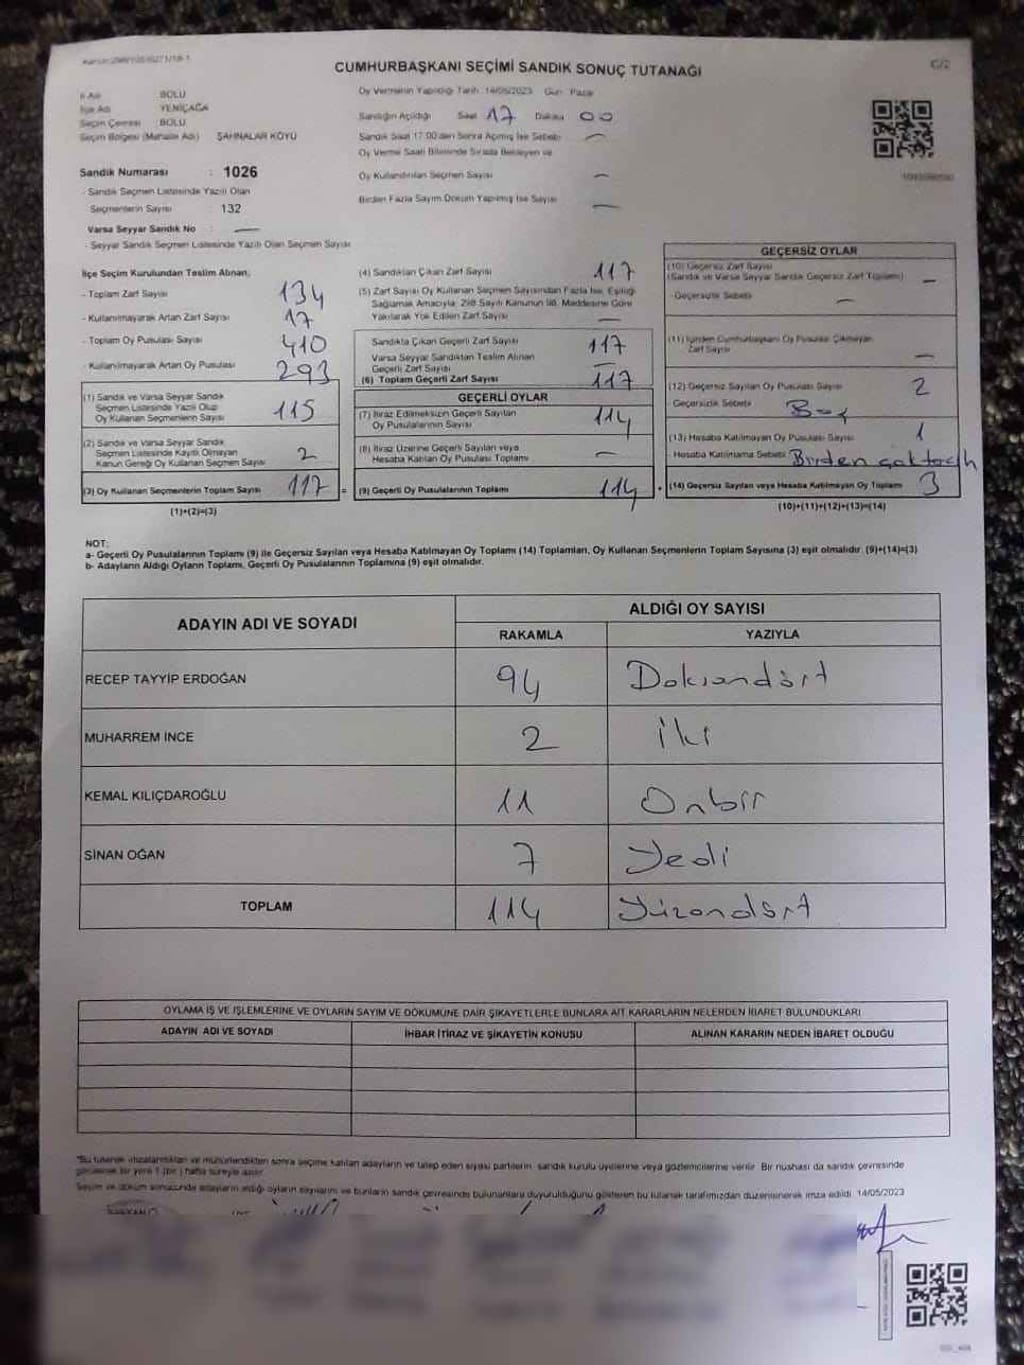 CUMHURBAŞKANI SEÇİMİ SANDIK SONUÇ TUTANAĞI
C/2
İl Adı : BOLU
İlçe Adı : YENİÇAĞA
Seçim Çevresi : BOLU
Seçim Bölgesi (Mahalle Adı) : ŞAHNALAR KÖYÜ
Sandık Numarası : 1026
- Sandık Seçmen Listesinde Yazılı Olan
Seçmenlerin Sayısı : 132
Varsa Seyyar Sandık No : —
- Seyyar Sandık Seçmen Listesinde Yazılı Olan Seçmen Sayısı
Oy Vermenin Yapıldığı Tarih 14/05/2023 Gün Pazar
Sandığın Açıldığı Saat 17 Dakika 00
Sandık Saat 17:00'den Sonra Açılmış İse Sebebi —
Oy Verme Saati Bitiminde Sırada Bekleyen ve
Oy Kullandırılan Seçmen Sayısı —
Birden Fazla Sayım Döküm Yapılmış İse Sayısı —
İlçe Seçim Kurulundan Teslim Alınan;
- Toplam Zarf Sayısı 134
- Kullanılmayarak Artan Zarf Sayısı 17
- Toplam Oy Pusulası Sayısı 410
- Kullanılmayarak Artan Oy Pusulası 293
(1) Sandık ve Varsa Seyyar Sandık
Seçmen Listesinde Yazılı Olup
Oy Kullanan Seçmenlerin Sayısı 115
(2) Sandık ve Varsa Seyyar Sandık
Seçmen Listesinde Kayıtlı Olmayan
Kanun Gereği Oy Kullanan Seçmen Sayısı 2
(3) Oy Kullanan Seçmenlerin Toplam Sayısı 117 =
(1)+(2)=(3)
(4) Sandıktan Çıkan Zarf Sayısı 117
(5) Zarf Sayısı Oy Kullanan Seçmen Sayısından Fazla İse, Eşitliği
Sağlamak Amacıyla, 298 Sayılı Kanunun 98. Maddesine Göre
Yakılarak Yok Edilen Zarf Sayısı —
Sandıkta Çıkan Geçerli Zarf Sayısı 117
Varsa Seyyar Sandıktan Teslim Alınan
Geçerli Zarf Sayısı —
(6) Toplam Geçerli Zarf Sayısı 117
GEÇERLİ OYLAR
(7) İtiraz Edilmeksizin Geçerli Sayılan
Oy Pusulalarının Sayısı 114
(8) İtiraz Üzerine Geçerli Sayılan veya
Hesaba Katılan Oy Pusulası Toplamı —
(9) Geçerli Oy Pusulalarının Toplamı 114 +
GEÇERSİZ OYLAR
(10) Geçersiz Zarf Sayısı
(Sandık ve Varsa Seyyar Sandık Geçersiz Zarf Toplamı) —
- Geçersizlik Sebebi —
(11) İçinden Cumhurbaşkanı Oy Pusulası Çıkmayan
Zarf Sayısı —
(12) Geçersiz Sayılan Oy Pusulası Sayısı 2
- Geçersizlik Sebebi Boş
(13) Hesaba Katılmayan Oy Pusulası Sayısı 1
Hesaba Katılmama Sebebi Birden çok tercih
(14) Geçersiz Sayılan veya Hesaba Katılmayan Oy Toplamı 3
(10)+(11)+(12)+(13)=(14)
NOT:
a- Geçerli Oy Pusulalarının Toplamı (9) ile Geçersiz Sayılan veya Hesaba Katılmayan Oy Toplamı (14) Toplamları, Oy Kullanan Seçmenlerin Toplam Sayısına (3) eşit olmalıdır. (9)+(14)=(3)
b- Adayların Aldığı Oyların Toplamı, Geçerli Oy Pusulalarının Toplamına (9) eşit olmalıdır.
ADAYIN ADI VE SOYADI
ALDIĞI OY SAYISI
RAKAMLA YAZIYLA
RECEP TAYYİP ERDOĞAN 94 Doksandört
MUHARREM İNCE 2 iki
KEMAL KILIÇDAROĞLU 11 Onbir
SİNAN OĞAN 7 Yedi
TOPLAM 114 Yüzondört
OYLAMA İŞ VE İŞLEMLERİNE VE OYLARIN SAYIM VE DÖKÜMÜNE DAİR ŞİKAYETLERLE BUNLARA AİT KARARLARIN NELERDEN İBARET BULUNDUKLARI
ADAYIN ADI VE SOYADI İHBAR İTİRAZ VE ŞİKAYETİN KONUSU ALINAN KARARIN NEDEN İBARET OLDUĞU
*Bu tutanak imzalandıktan ve mühürlendikten sonra seçime katılan adayların ve talep eden siyasi partilerin sandık kurulu üyelerine veya gözlemcilerine verilir. Bir nüshası da sandık çevresinde
görülecek bir yere 1 (bir) hafta süreyle asılır.
Seçim ve döküm sonucunda adayların aldığı oyların sayılarını ve bunların sandık çevresinde bulunanlara duyurulduğunu gösteren bu tutanak tarafımızdan düzenlenerek imza edildi. 14/05/2023